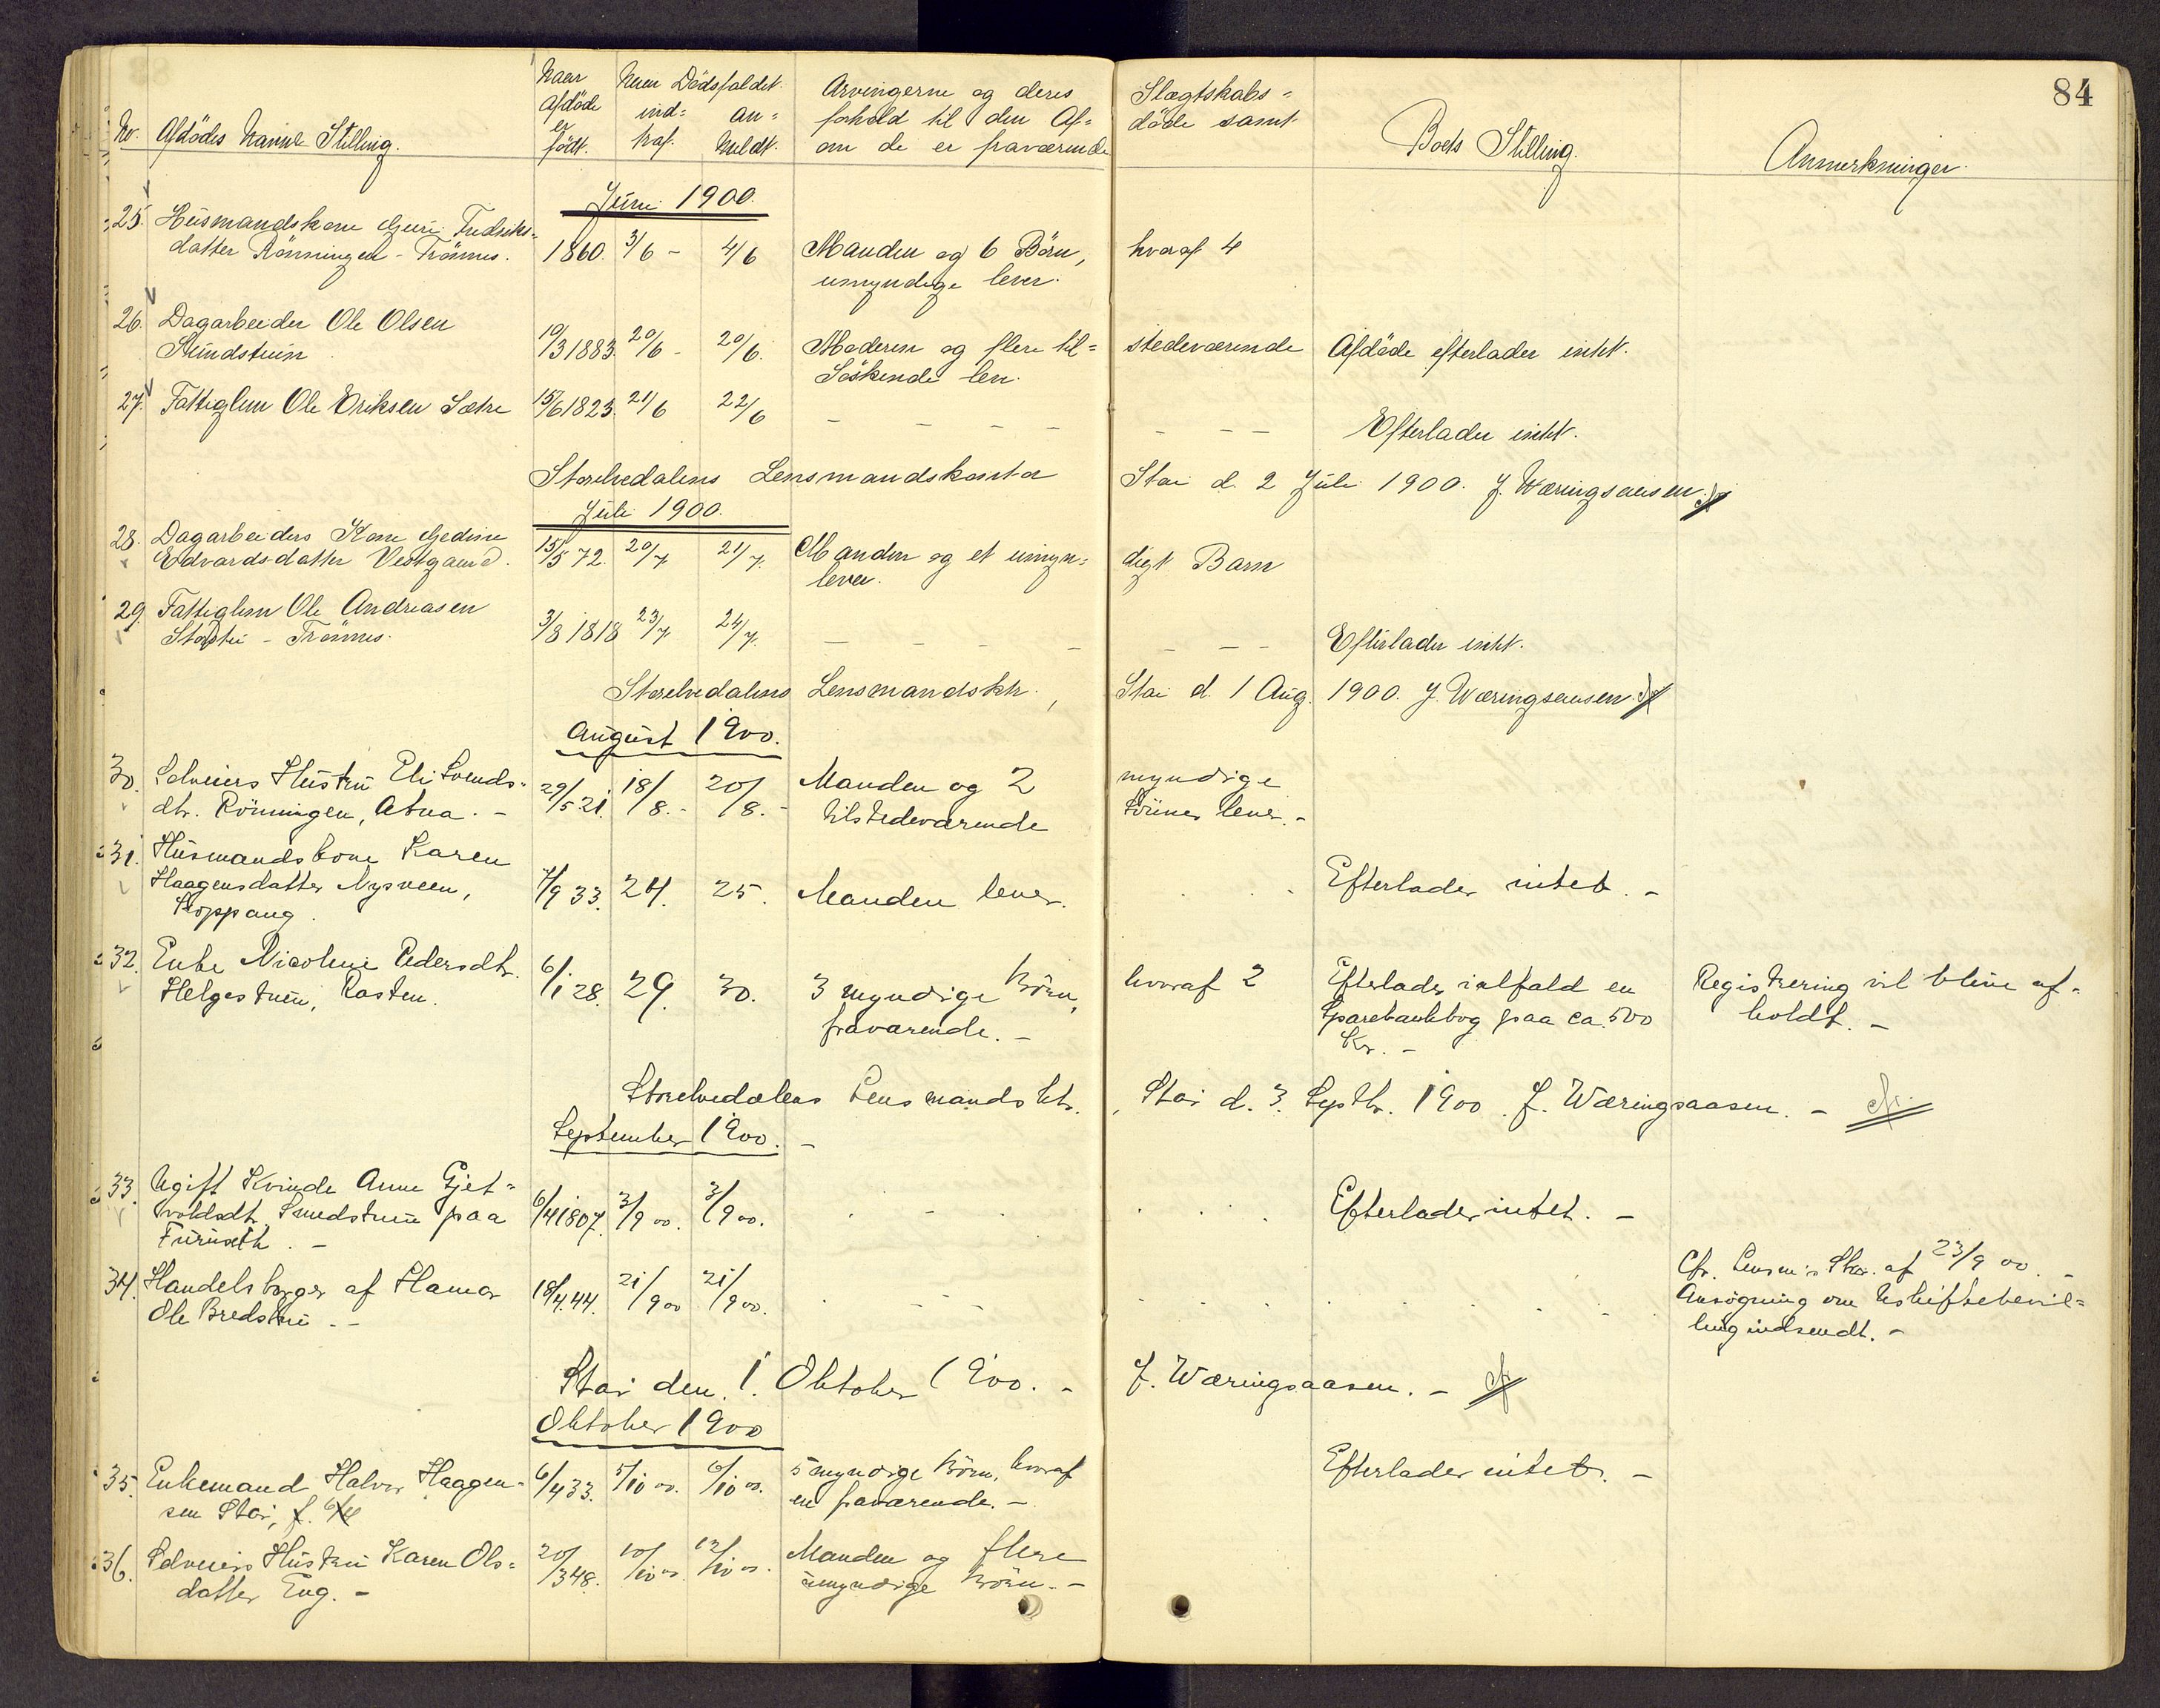 84
No. Afdödes Navn & Stilling. Naar Afdöde er födt. Naar Dödsfaldet ind= traf. an= meldt. Arvingerne og deres Slægtskabs=
forhold til den Af= döde samt
om de er fraværende Boets Stilling. Anmerkninger.
Juni 1900.
25. Husmandskone Guri Fredriks=
datter Rönningen - Trönnes. 1860. 3/6 - 4/6 Manden og 6 Börn, hvoraf 4
umyndige lever.
26. Dagarbeider Ole Olsen
Stundstuen 19/3 1883. 20/6 - 20/6. Moderen og flere til= stedeværende Afdöde efterlader intet.
Söskende lev.
27. Fattiglem Ole Eriksen Sætre 15/6 1823. 21/6 22/6 - - - - - - - Efterlader intet.
Storelvedalens Lensmandskontor Stai d. 2 Juli 1900. J. Wæringsaasen
Juli 1900.
28. Dagarbeiders Kone Gjedine
Edvardsdatter Vestgaard. 15/5 72. 20/7 21/7. Manden og et umyn= digt Barn
lever.
29. Fattiglem Ole Andreasen
Trönnes. 3/8 1818 23/7 24/7. - - - - - - - Efterlader intet.
Storelvedalens Lensmandsktr., Stai d. 1 Aug. 1900. J. Wæringsaasen.
August 1900.
30. Selveiers Hustru Eli Svends=
dtr. Rönningen, Atna. - 29/5 21. 18/8. - 20/8. - Manden og 2 myndige
tilstedeværende Sönner lever. -
31. Husmandskone Karen
Haagensdatter Nysveen,
Koppang. 7/9 33. 24. 25. Manden lever. Efterlader intet. -
32. Enke Nicoline Pedersdtr.
Helgestuen, Rasten. 6/1 28. 29. 30. 3 myndige Börn, hvoraf 2 Efterlader ialfald en Registrering vil blive af=
fraværende. - Sparebankbog paa ca. 500 holdt. -
Kr. -
Storelvedalens Lensmandsktr., Stai d. 3. Septbr. 1900. J. Wæringsaasen. -
September 1900. -
33. Ugift Kvinde Anne Gjet=
voldsdtr. Smedstuen paa
Furuseth. - 6/4 1807. 3/9 00. 3/9 00. Efterlader intet. -
34. Handelsborger af Hamar
Ole Bredstui. - 18/4 44. 21/9 00 21/9 00. Cfr. Lensm's Skr. af 23/9 00. -
Ansögning om Uskiftebevil=
ling indsendt. -
Stai den 1. Oktober 1900. - J. Wæringsaasen. -
Oktober 1900
35. Enkemand Halvor Haagen=
sen Stai, 6/4 33. 5/10 00. 6/10 00. 5 myndige Börn, hvoraf
en fraværende. - Efterlader intet. -
36. Selveiers Hustru Karen Ols=
datter Eng. - 20/3 48. 10/10 00. 12/10 00. Manden og flere
umyndige Börn. -